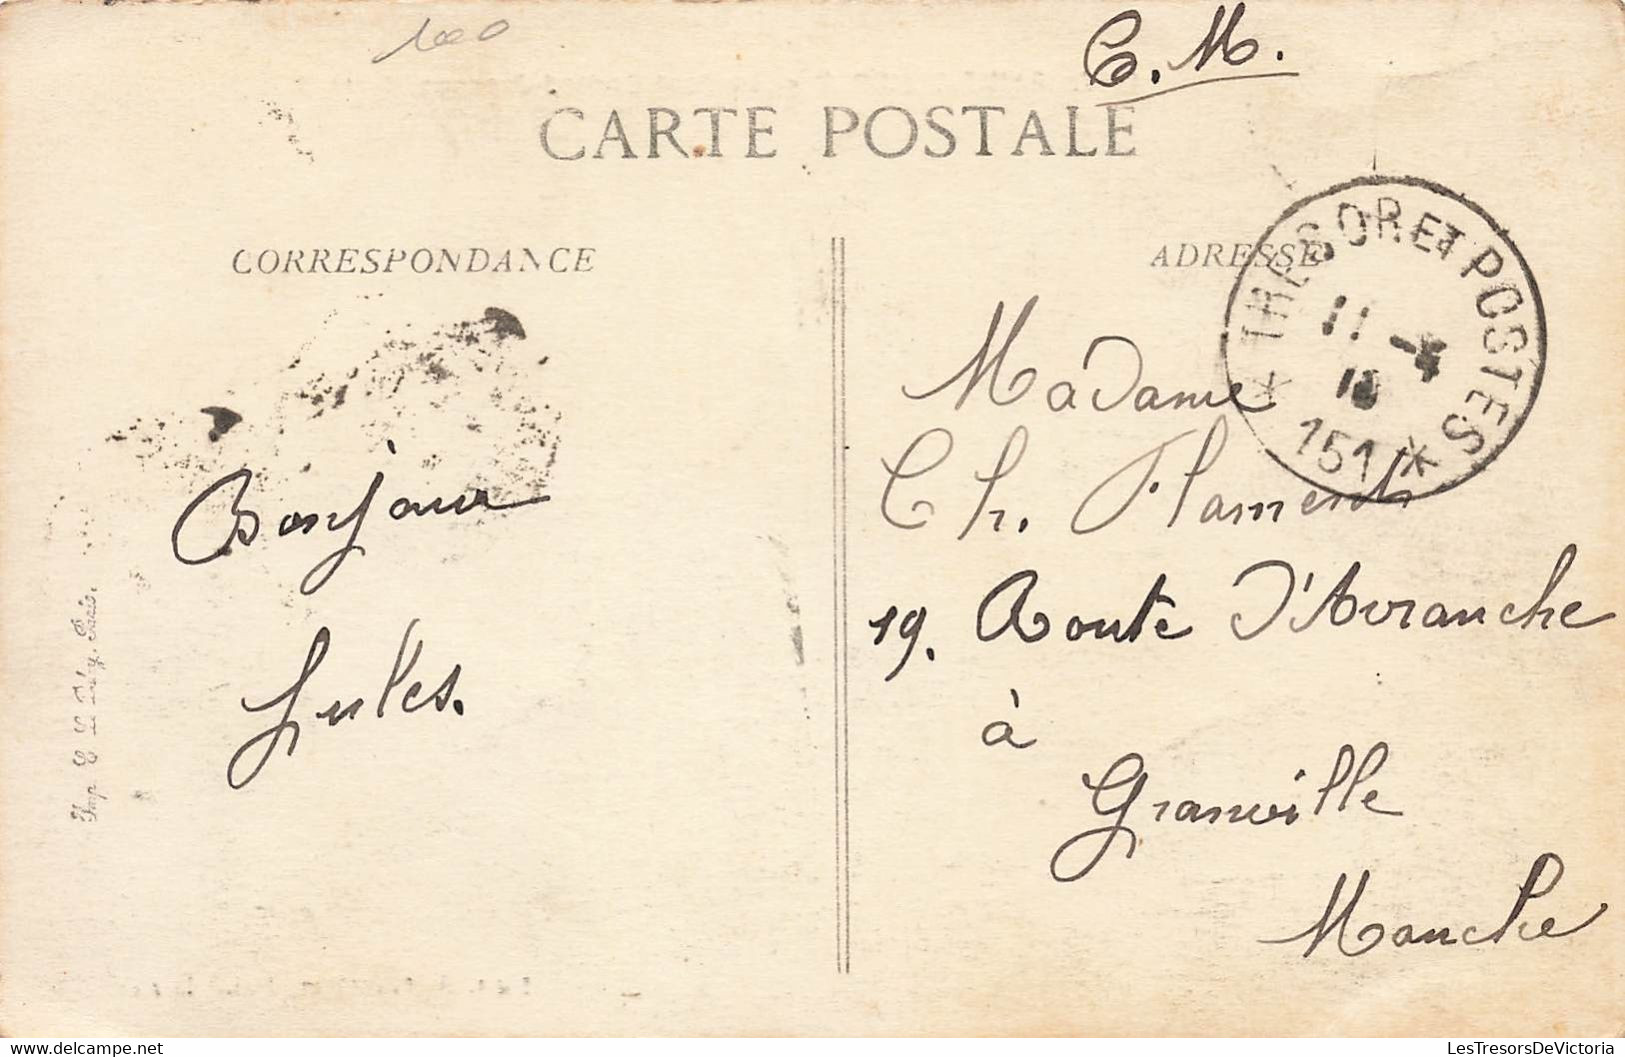 100
C. M.
CARTE POSTALE
CORRESPONDANCE
ADRESSE
* TRESOR ET POSTES *
11 -4
151
Madame
Ch. Flament
19. Route d'Avranche
à
Granville
Manche
Bonjour
Jules.
LesTresorsDeVictoria